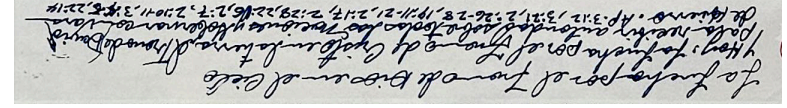 La lucha por el Trono de Dios en el Cielo
y Hoy: la lucha por el Trono de Cristo en la tierra, el Trono de David
para recibir autoridad sobre todas las Naciones y gobernar con Vara
de Hierro. Ap. 3:12, 3:21, 2:26-28, 19:11-21, 2:17, 2:28, 22:16, 2:7, 2:10-11, 3:4-5, 22:14